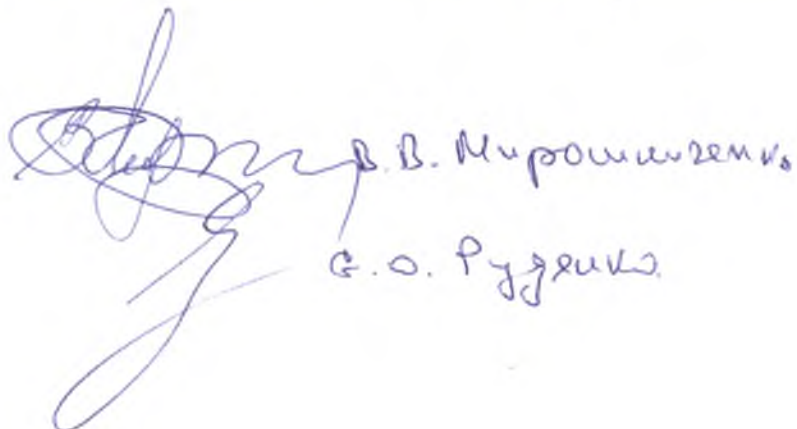 В. В. Мирошниченко
Є. О. Руденко